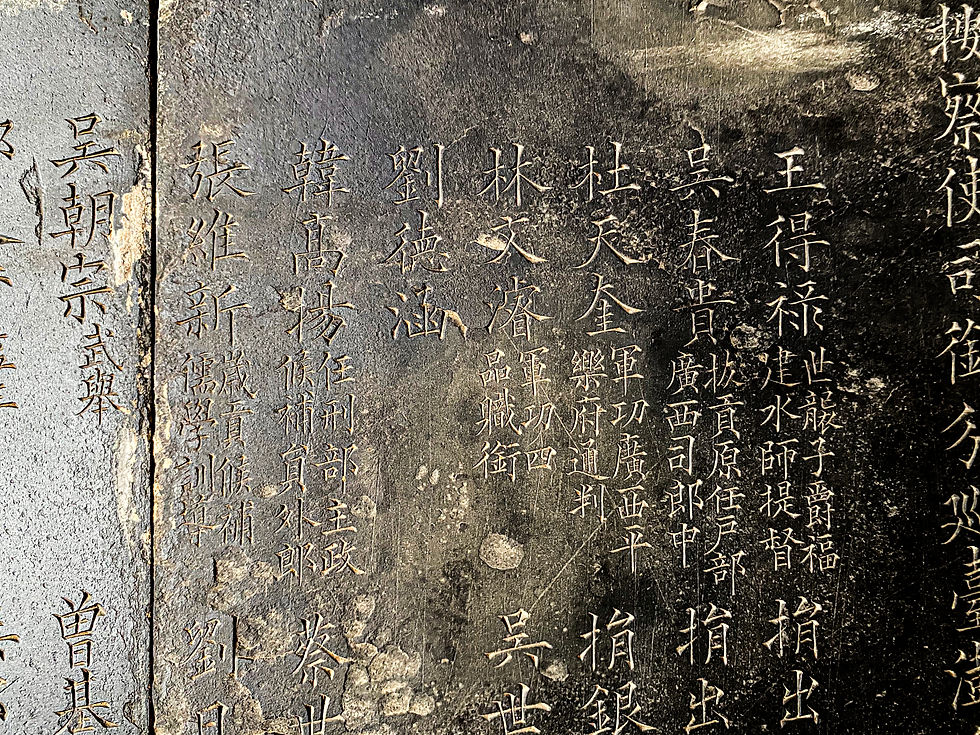 按察使司銜分巡臺灣
王得祿世襲子爵福建水師提督 捐出
吳春貴拔貢原任戶部廣西司郎中 捐出
杜天奎軍功廣西平樂府通判 捐銀
林文濬軍功四品職銜 吳世
劉德涵
韓高揚任刑部主政候補員外郎 蔡世
張維新歲貢候補儒學訓導 劉
吳朝宗武舉 曾基